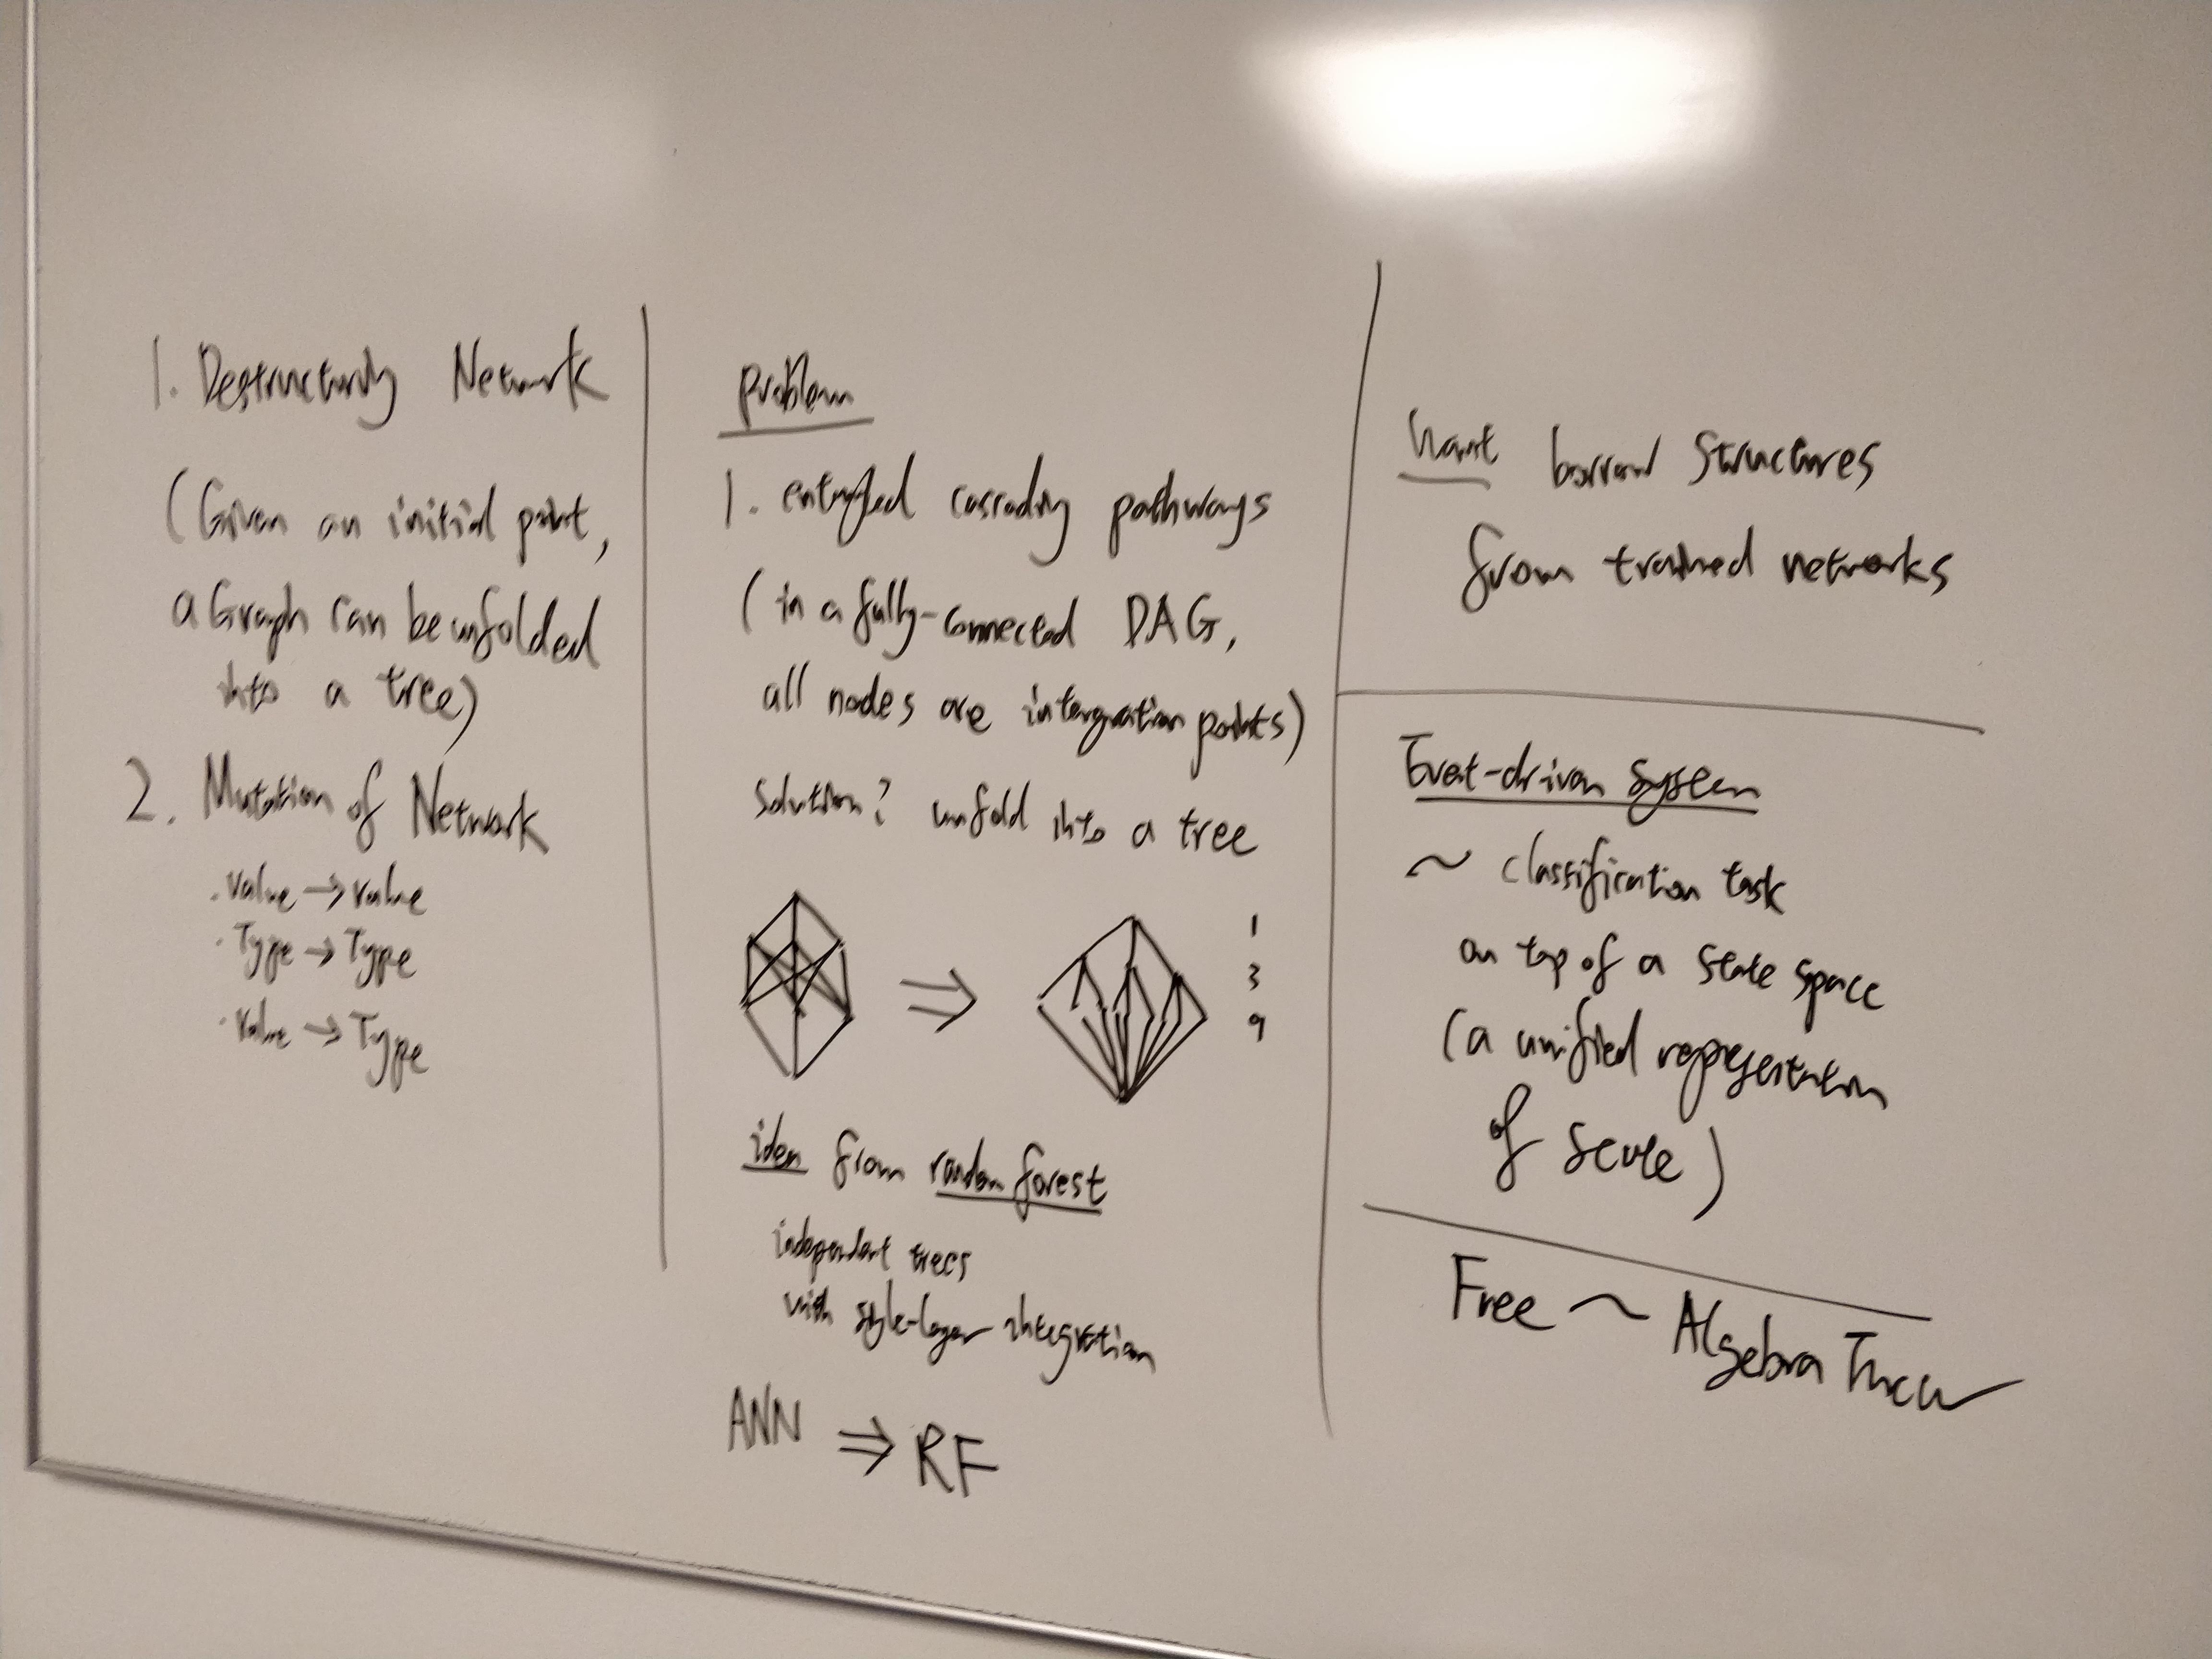 1. Destructuring Network
(Given an initial point,
a Graph can be unfolded
into a tree)
2. Mutation of Network
. Value → Value
. Type → Type
. Value → Type
Problem
1. entangled cascading pathways
(in a fully-connected DAG,
all nodes are intergration points)
Solution? unfold into a tree
⇒
1
3
9
idea from random forest
independent trees
with single-layer integration
ANN ⇒ RF
Want borrow structures
from trained networks
Event-driven System
~ classification task
on top of a state space
(a unified representation
of state)
Free ~ Algebra